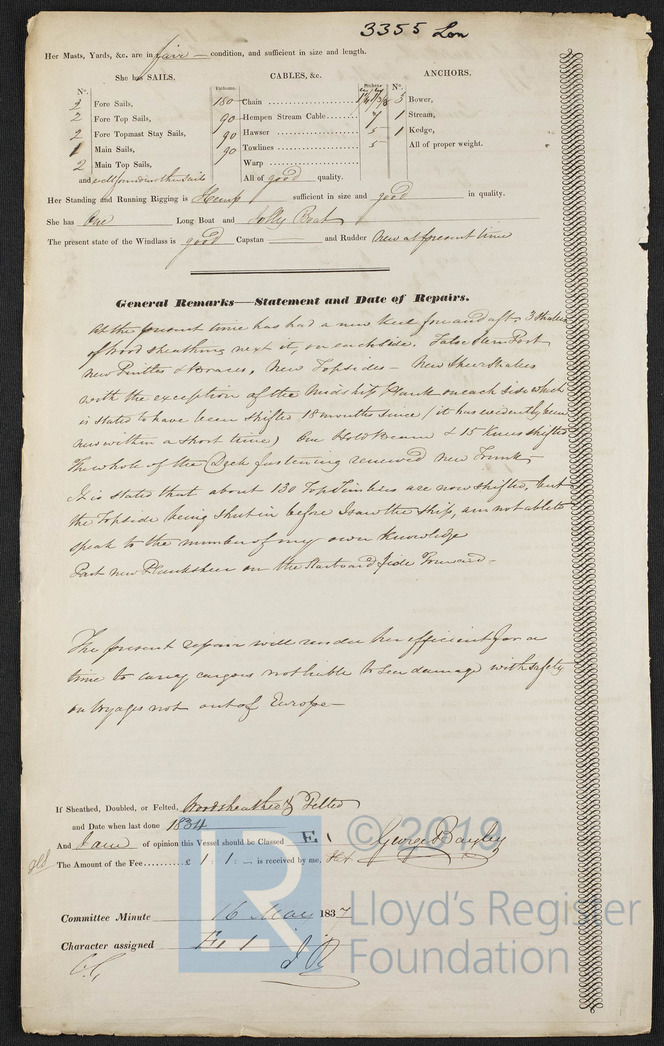 3355 Lon
Her Masts, Yards, &c. are in fair condition, and sufficient in size and length.
She has SAILS.
CABLES, &c.
ANCHORS.
N°.
2 Fore Sails,
2 Fore Top Sails,
2 Fore Topmast Stay Sails,
1 Main Sails,
2 Main Top Sails,
and all founding other Sails
Fathoms.
Inches
180 Chain
90 Hempen Stream Cable 7
90 Hawser 5
90 Towlines 5
Warp
All of good quality.
N°.
3 Bower,
1 Stream,
1 Kedge,
All of proper weight.
Her Standing and Running Rigging is Hemp sufficient in size and good in quality.
She has One Long Boat and Jolly Boat
The present state of the Windlass is good Capstan and Rudder New at present time
General Remarks—Statement and Date of Repairs.
At the present time has had a new Keel fore and aft - 3 Strakes
of Wood sheathing next it, on each side. False Stern Post
New Pintles & Braces, New Topsides - New Sheer Strakes
with the exception of the Midship Plank on each side which
is stated to have been shifted 18 months since (it has evidently been
new within a short time) One Hold Beam & 15 Knees shifted
The whole of the Deck fastening renewed new Trunk
It is stated that about 130 Top Timbers are now shifted, but
the Topside being shut in before I saw the ship, am not able to
speak to the number of my own Knowledge
Part new Planksheer on the Starboard side Forward -
The present repair will render her efficient for a
time to carry cargoes not liable to Sea damage with safety
on Voyages not out of Europe -
If Sheathed, Doubled, or Felted, Woodsheathed & Felted
and Date when last done 1834
And I am of opinion this Vessel should be Classed E 1
The Amount of the Fee £ 1 : 1 : - is received by me, George Bayley
Committee Minute 16 May 1837
Character assigned E 1
© 2019
LR
Lloyd's Register
Foundation